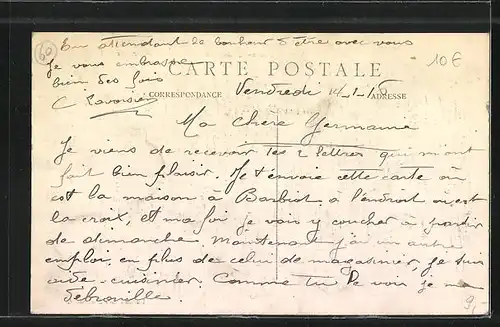 60
En attendant le bonheur d'être avec vous
Je vous embrasse
bien des fois
C Lavoisier
10€
CARTE POSTALE
CORRESPONDANCE
ADRESSE
Vendredi 14-1-16
Ma chere Germaine
Je viens de recevoir tes 2 lettres qui m'ont
fait bien plaisir. Je t'envoie cette carte où
est la maison à Barbist à l'endroit où est
la croix, et ma foi je vais y coucher à partir
de dimanche. Maintenant j'ai un autre
emploi en plus de celui de magasinier, je suis
aide-cuisinier. Comme tu le vois je me
débrouille.
9,-